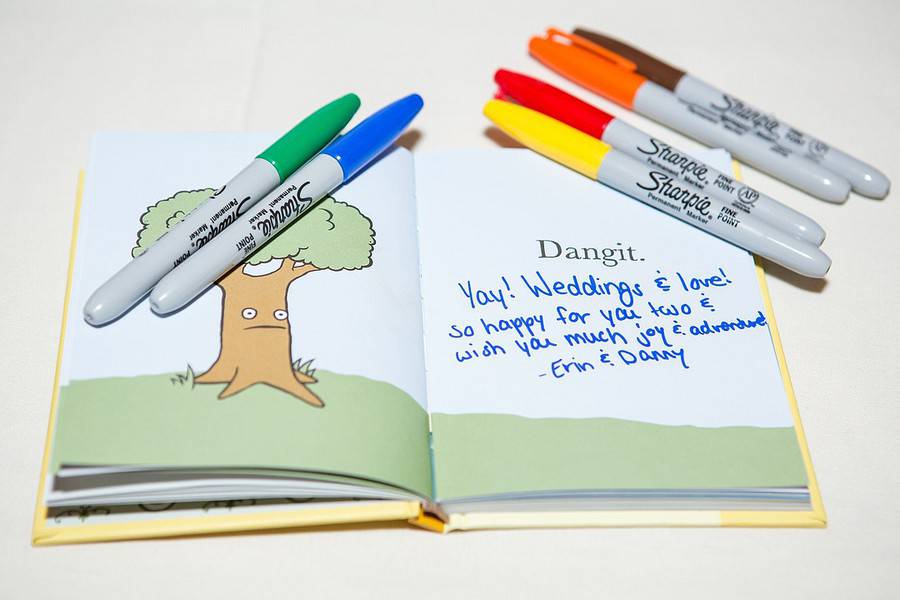 Dangit.
Yay! Weddings & love!
so happy for you two &
wish you much joy & adventure!
- Erin & Danny
Sharpie
Permanent Marker
FINE POINT
Sharpie
Permanent Marker
FINE POINT
Sharpie
Sharpie
Permanent Marker
FINE
POINT
AP
Sharpie
Permanent Marker
FINE
POINT